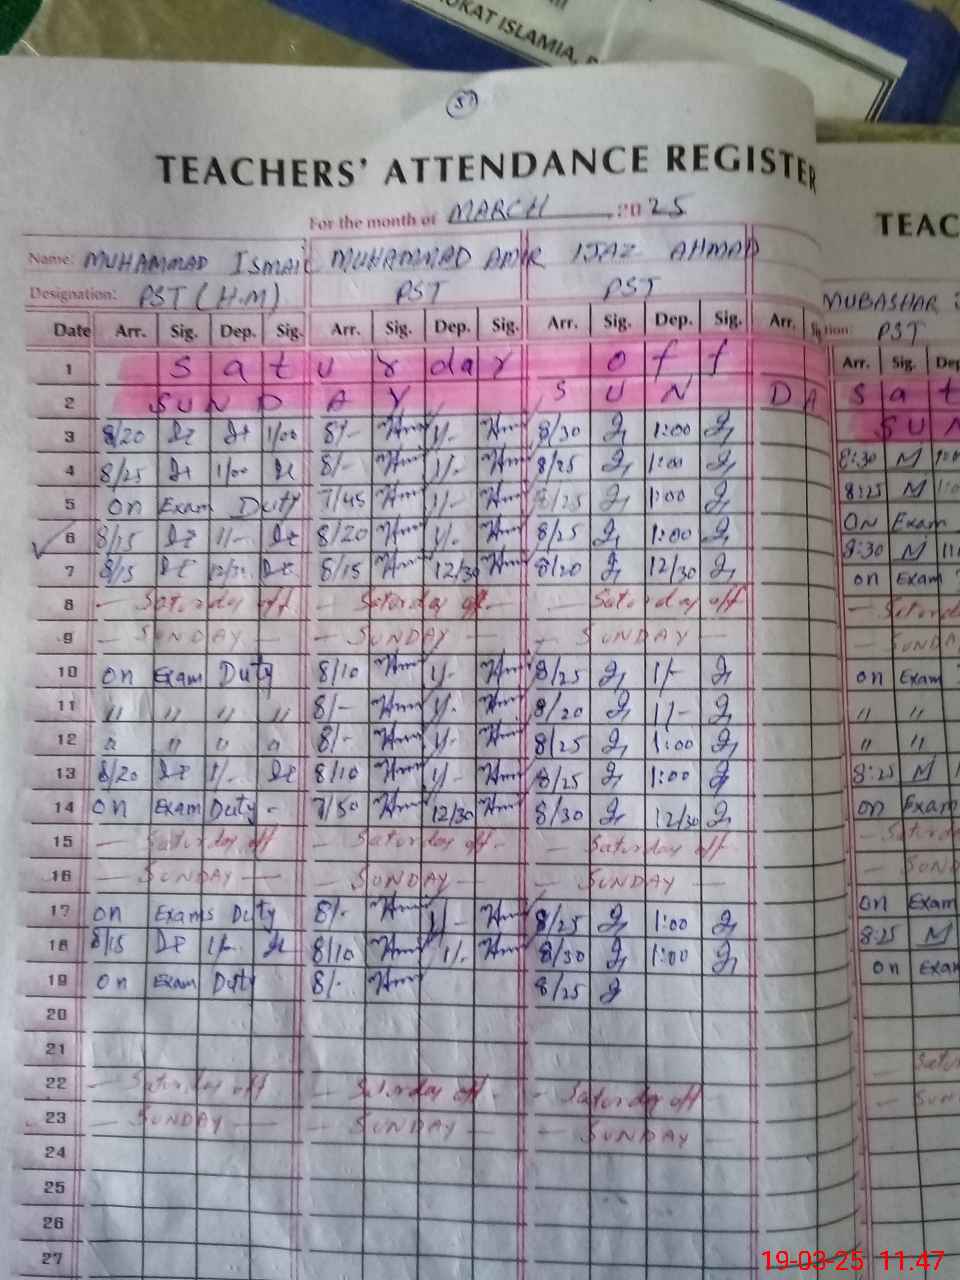 OKAT ISLAMIA,
51
TEACHERS' ATTENDANCE REGISTER
For the month of MARCH 2025
Name: MUHAMMAD ISMAIL MUHAMMAD AMIR IJAZ AHMAD
Designation: PST (H.M) PST PST
Date Arr. Sig. Dep. Sig. Arr. Sig. Dep. Sig. Arr. Sig. Dep. Sig. Arr.
1 Saturday off
2 SUNDAY SUNDA
3 8/20 1/00 8/- 1/- 8/30 1:00
4 8/25 1/00 8/- 1/- 8/25 1:00
5 on Exam Duty 7/45 1/- 8/25 1:00
6 8/15 1/- 8/20 1/- 8/25 1:00
7 8/15 12/30 8/15 12/30 8/20 12/30
8 - Saturday off - Saturday off - - Saturday off
9 - SUNDAY - - SUNDAY - - SUNDAY -
10 on Exam Duty 8/10 1/- 8/25 1/-
11 " " " " 8/- 1/- 8/20 1/-
12 " " " " 8/- 1/- 8/25 1:00
13 8/20 1/- 8/10 1/- 8/25 1:00
14 on Exam Duty - 7/50 12/30 8/30 12/30
15 - Saturday off - Saturday off - - Saturday off
16 - SUNDAY - - SUNDAY - - SUNDAY -
17 on Exams Duty 8/- 1/- 8/25 1:00
18 8/15 1/- 8/10 1/- 8/30 1:00
19 on Exam Duty 8/- 8/25
20
21
22 - Saturday off - Saturday off - - Saturday off -
23 - SUNDAY - - SUNDAY - - SUNDAY -
24
25
26
27
TEAC
MUBASHAR
tion: PST
Arr. Sig. Dep
Sat
SUN
8:30 M
8:25 M
ON Exam
8:30 M
on Exam
- Saturd
- SUNDA
on Exam
" "
" "
8:25 M
on Exam
- Saturd
- SUND
on Exam
8:25 M
on Exam
- Satur
- SUN
19-03-25 11.47